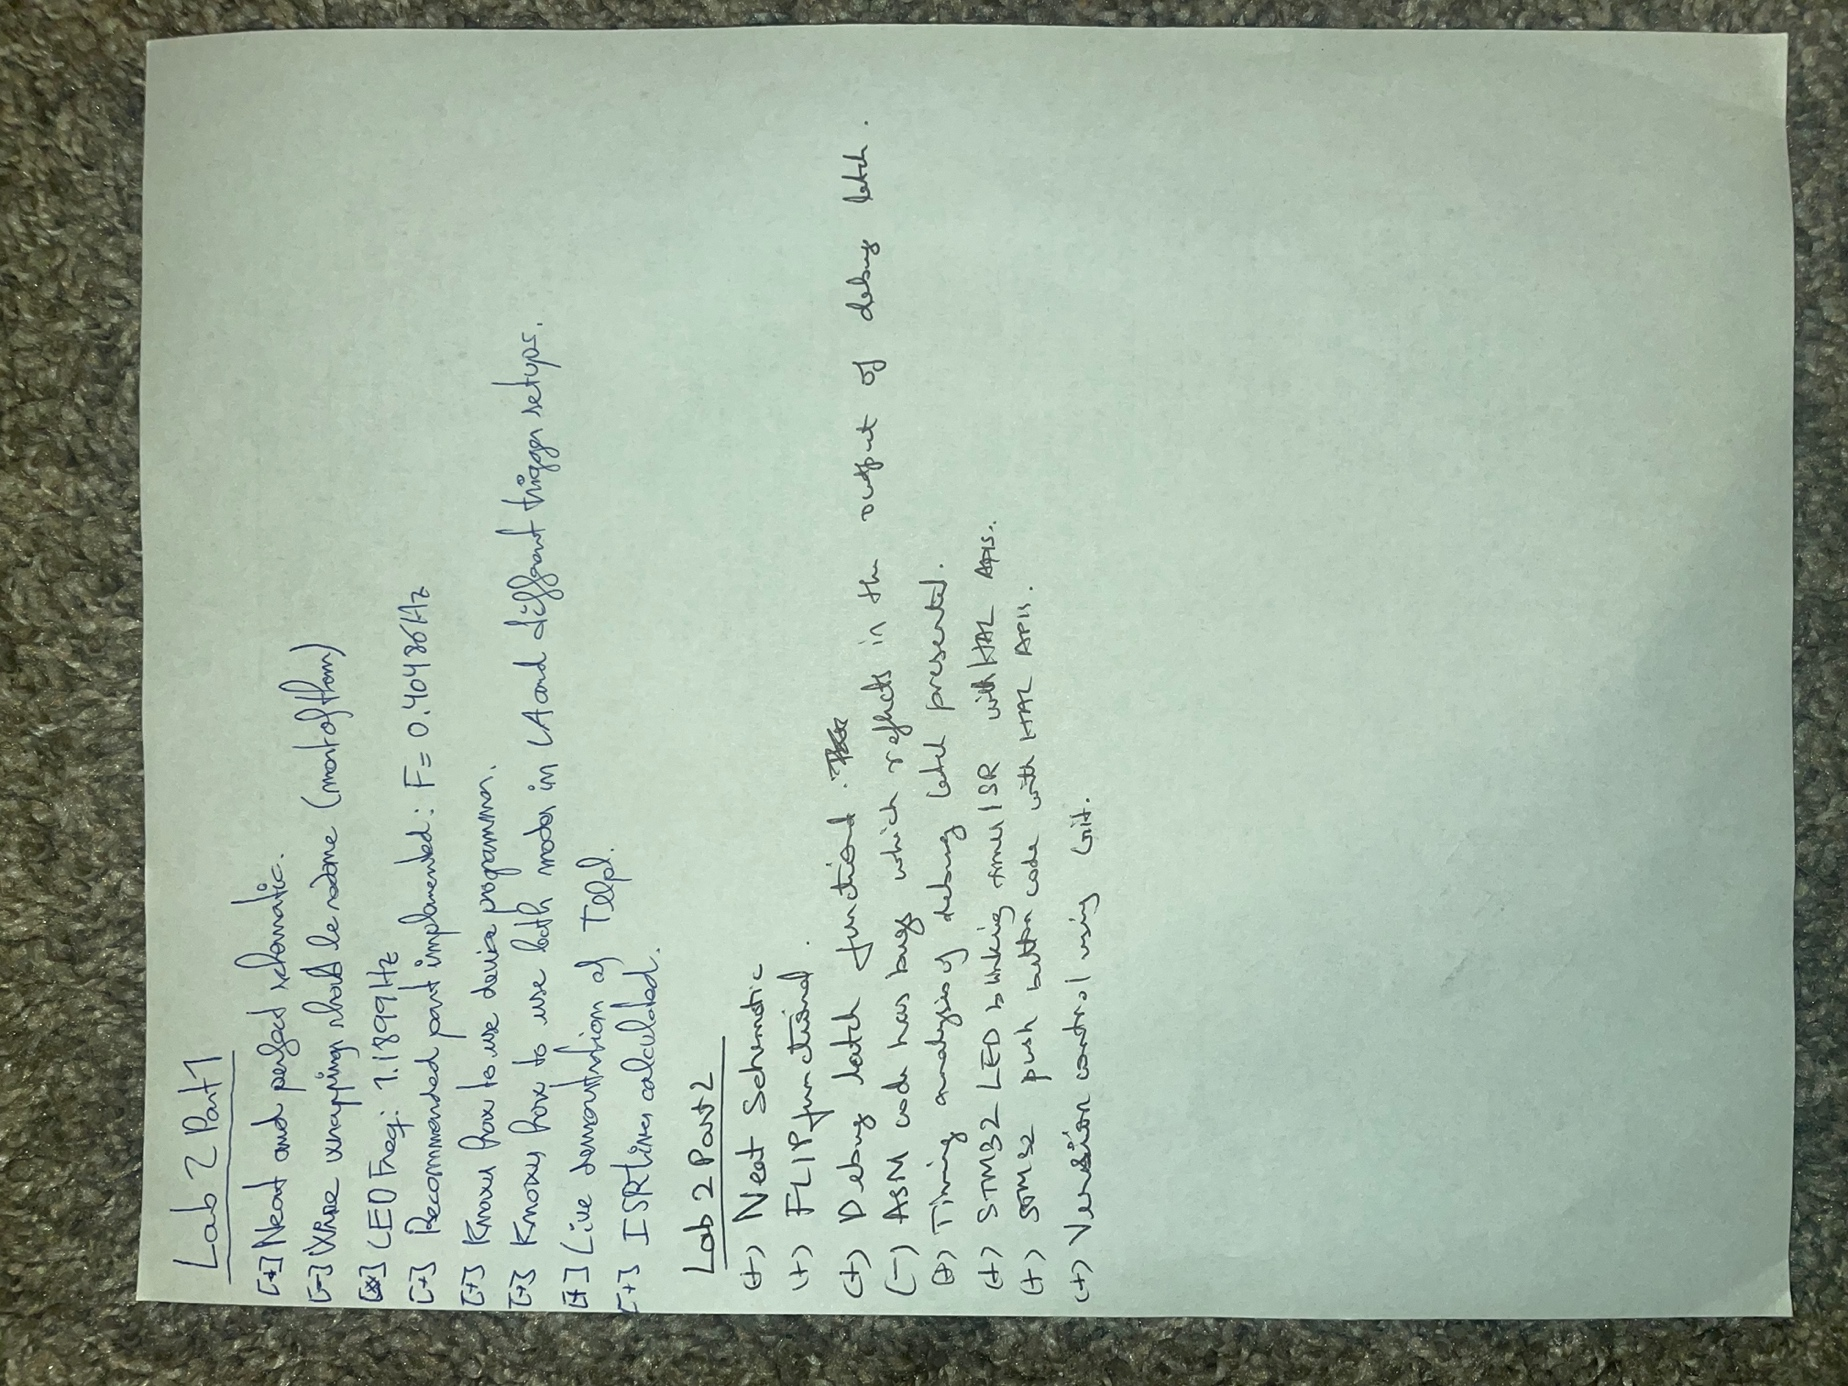 Lab 2 Part 1
[+] Neat and perfect schematic.
[-] Wire wrapping should be redone (most of them)
[+] LED Freq: 1.1899Hz
[+] Recommended part implemented: F = 0.40486Hz
[+] Knows how to use device programmer.
[+] Knows how to use both modes in LA and different trigger setups.
[+] Live demonstration of Tllpl.
[+] ISR time calculated.
Lab 2 Part 2
(+) Neat Schematic
(+) FLIP functional.
(+) Debug latch functional.
(-) ASM code has bugs which reflects in the output of debug latch.
(+) Timing analysis of debug latch presented.
(+) STM32 LED blinking timer ISR with HAL APIs.
(+) STM32 push button code with HAL APIs.
(+) Version control using Git.